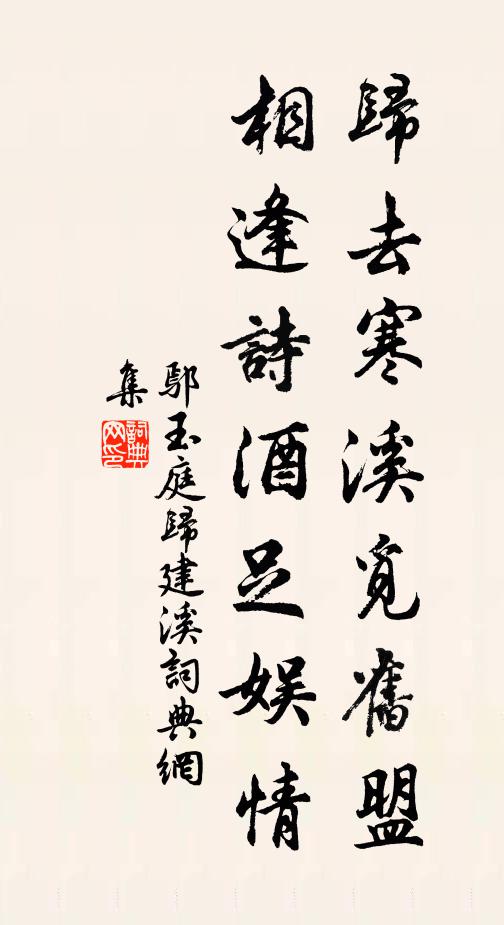 歸去寒溪覓舊盟
相逢詩酒足娛情
鄢玉庭歸建溪詞典網
集
詞典网印